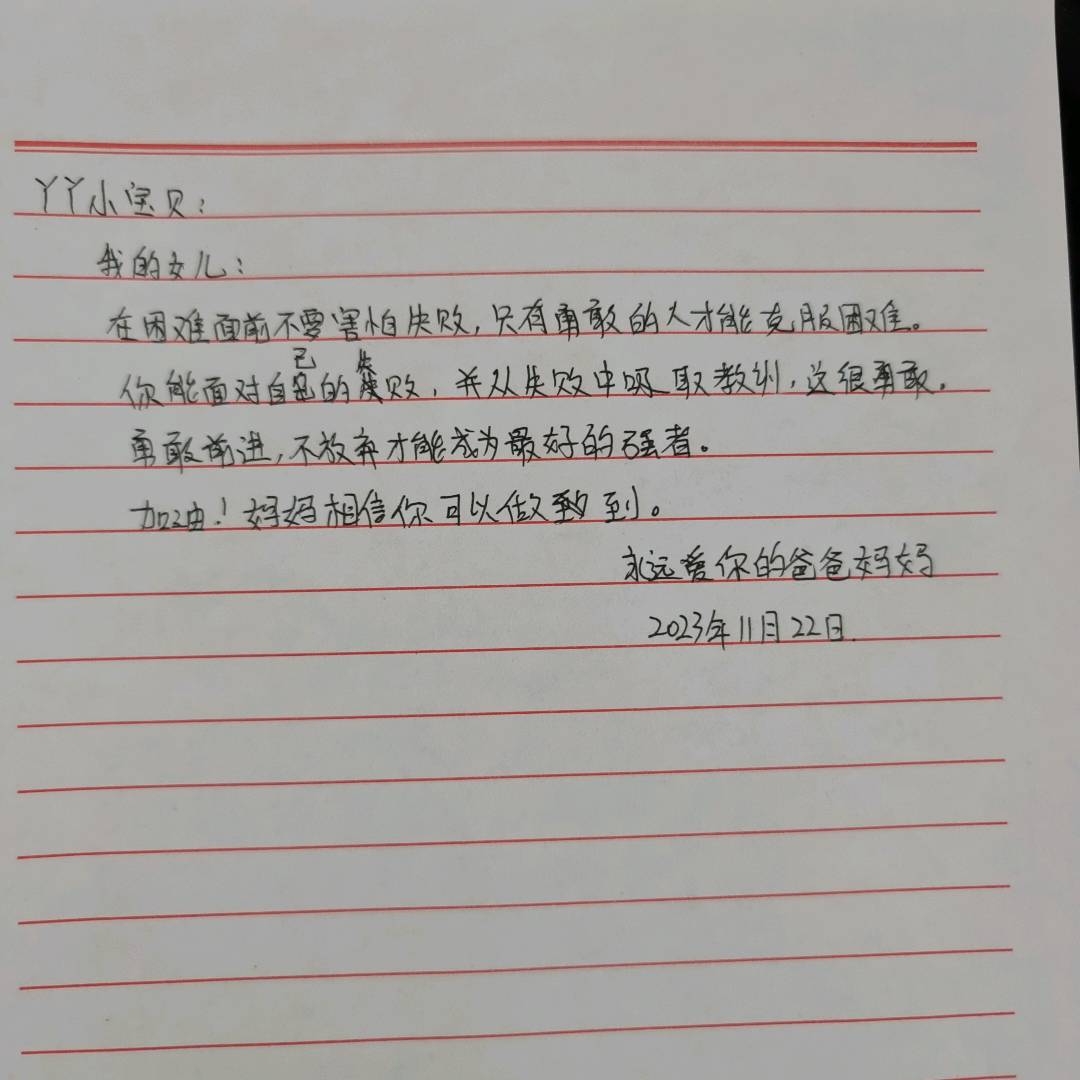 丫丫小宝贝：
我的女儿：
在困难面前不要害怕失败，只有勇敢的人才能克服困难。
你能面对自己的失败，并从失败中吸取教训，这很勇敢。
勇敢前进，不放弃才能成为最好的强者。
加油！妈妈相信你可以做到。
永远爱你的爸爸妈妈
2023年11月22日.